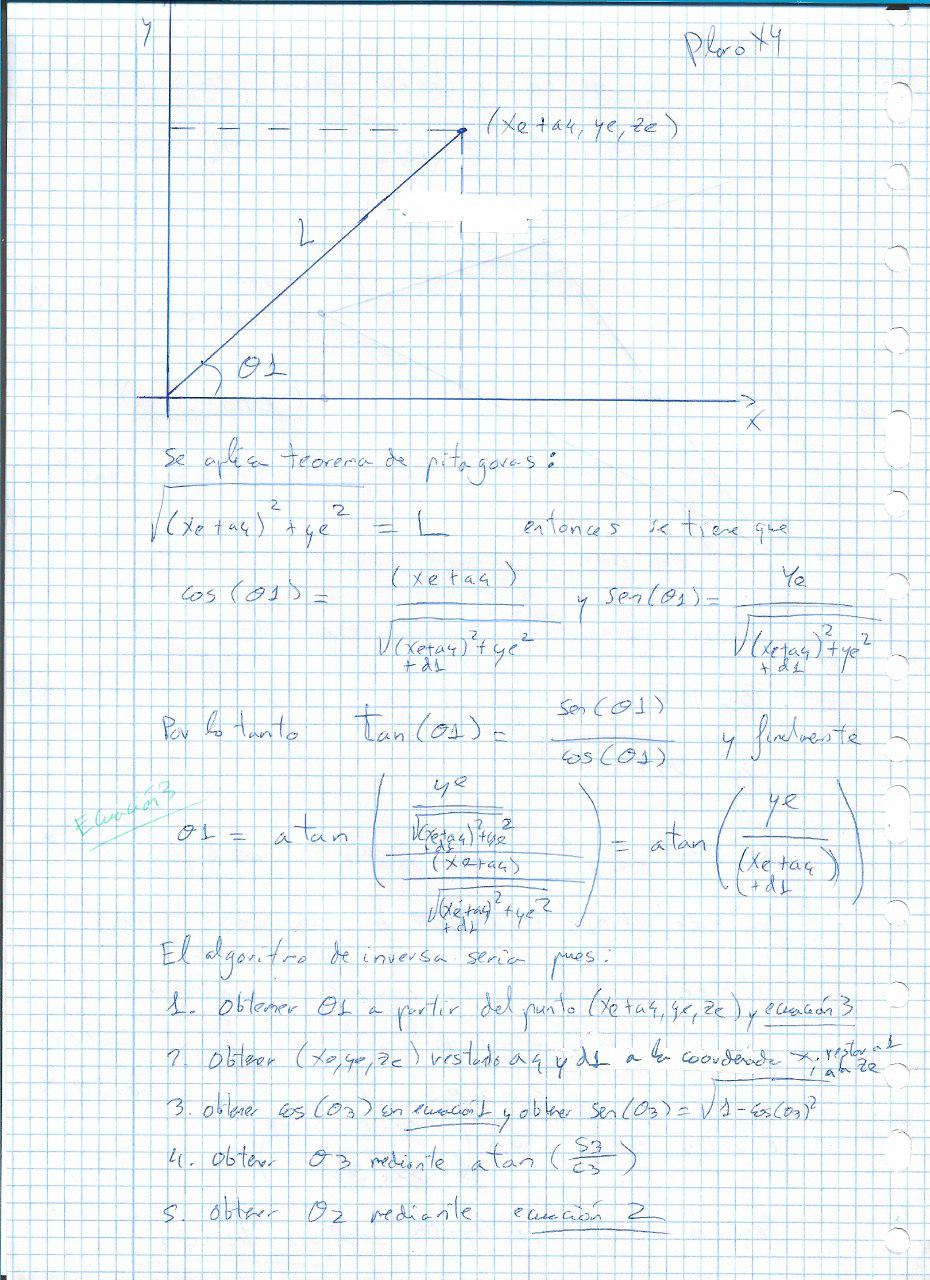 y
Plano XY
(xe+a4, ye, ze)
L
θ1
x
Se aplica teorema de pitagoras:
√((xe+a4)²+ye²) = L entonces se tiene que
cos(θ1) = (xe+a4) / √((xe+a4+d1)²+ye²) y sen(θ1) = ye / √((xe+a4+d1)²+ye²)
Por lo tanto tan(θ1) = sen(θ1) / cos(θ1) y finalmente
Ecuación 3
θ1 = atan((ye / √((xe+a4+d1)²+ye²)) / ((xe+a4) / √((xe+a4+d1)²+ye²))) = atan(ye / (xe+a4+d1))
El algoritmo de inversa seria pues:
1. Obtener θ1 a partir del punto (xe+a4, ye, ze) y ecuación 3
2. Obtener (xe, ye, ze) restado a4 y d1 a la coordenada x, restar a1 a ze
3. obtener cos(θ3) en ecuación 1 y obtener sen(θ3) = √(1-cos(θ3)²)
4. obtener θ3 mediante atan(S3/C3)
5. obtener θ2 mediante ecuación 2